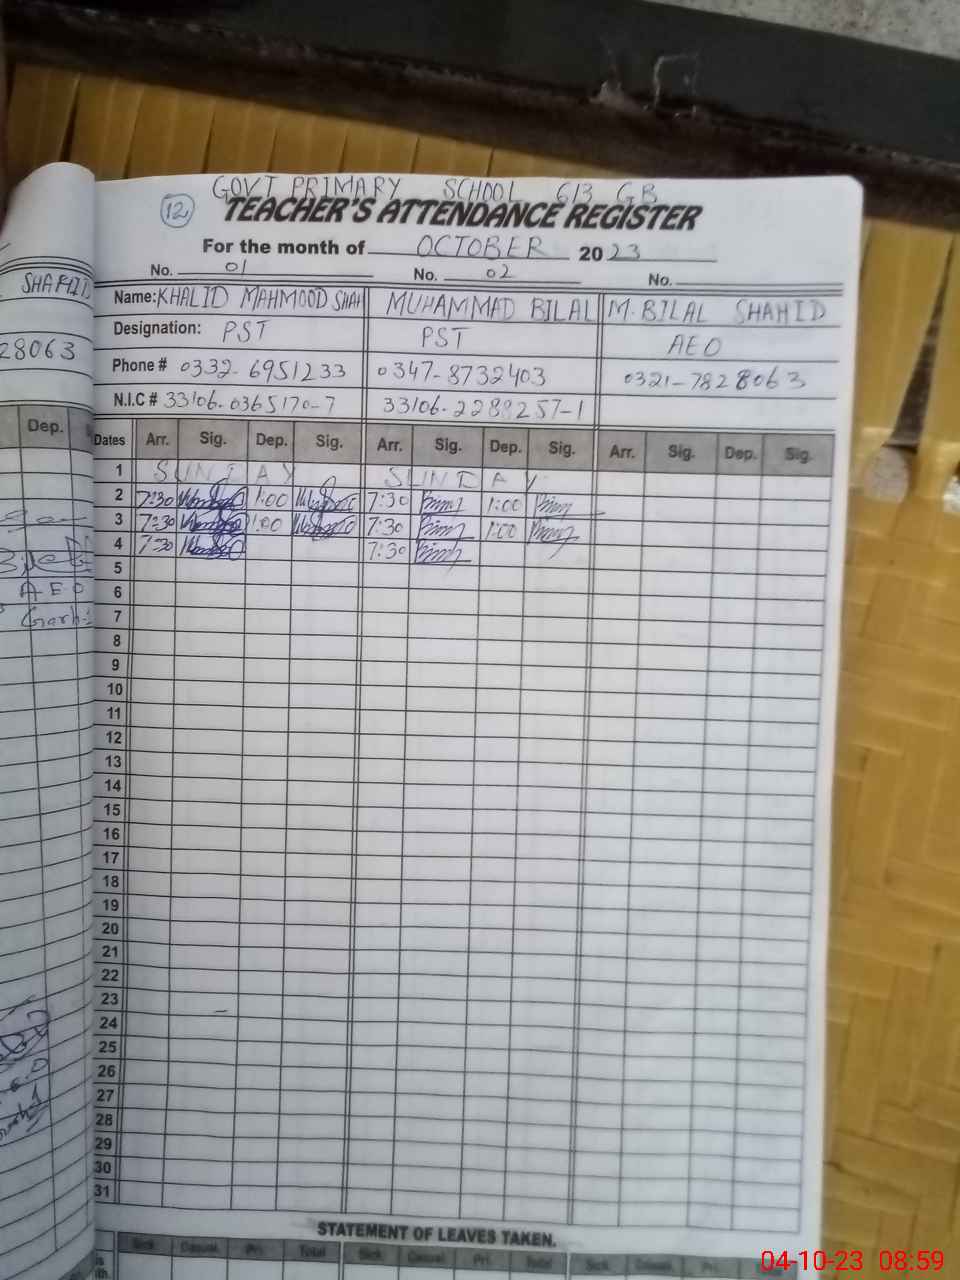 GOVT PRIMARY SCHOOL 613 GB
12 TEACHER'S ATTENDANCE REGISTER
For the month of OCTOBER 2023
No. 01 No. 02 No.
SHAFQI
Name: KHALID MAHMOOD SHAH MUHAMMAD BILAL M. BILAL SHAHID
Designation: PST PST AEO
28063 Phone # 0332-6951233 0347-8732403 0321-7828063
N.I.C # 33106-0365170-7 33106-2289257-1
Dep. Dates Arr. Sig. Dep. Sig. Arr. Sig. Dep. Sig. Arr. Sig. Dep. Sig.
1 SUNDAY SUNDAY
2 7:30 1:00 7:30 1:00
3 7:30 1:00 7:30 1:00
4 7:30 7:30
5
A.E.O 6
7
8
9
10
11
12
13
14
15
16
17
18
19
20
21
22
23
24
25
26
27
28
29
30
31
STATEMENT OF LEAVES TAKEN.
Sick Casual Pri. Total Sick. Casual Pri. Total Sick. Casual Pri. Total
04-10-23 08:59